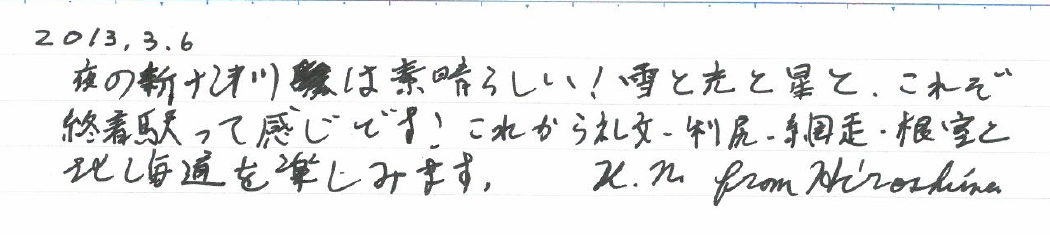 2013.3.6
夜の新十津川は素晴らしい!雪と光と星と、これぞ
終着駅って感じです!これから礼文・利尻・網走・根室と
北海道を楽しみます。 K.N from Hiroshima